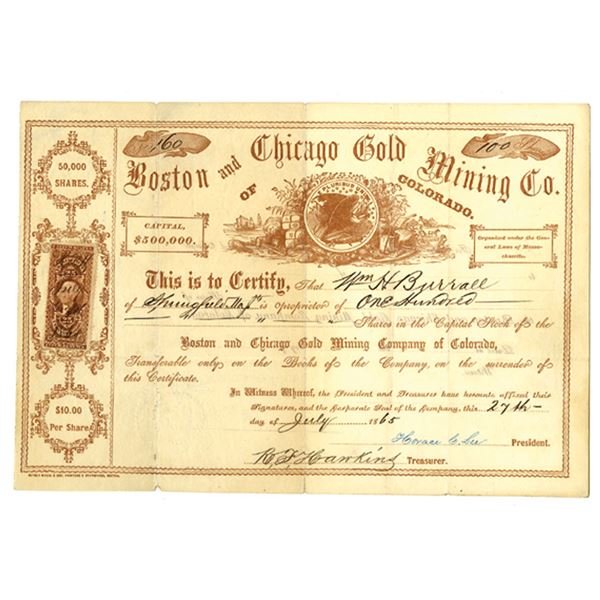 160
100 Shs
Boston and Chicago Gold Mining Co.
OF COLORADO.
E PLURIBUS UNUM
50,000
SHARES.
CAPITAL,
$500,000.
Organized under the General Laws of Massachusetts.
This is to Certify, That Wm H Burrall
of Springfield Mass is proprietor of One Hundred
Shares in the Capital Stock of the
Boston and Chicago Gold Mining Company of Colorado,
Transferable only on the Books of the Company, on the surrender of
this Certificate.
In Witness Whereof, the President and Treasurer have hereunto affixed their
Signatures, and the Corporate Seal of the Company, this 27th
day of July 1865
$10.00
Per Share
Horace C. Lee President.
H F Hawkins Treasurer.